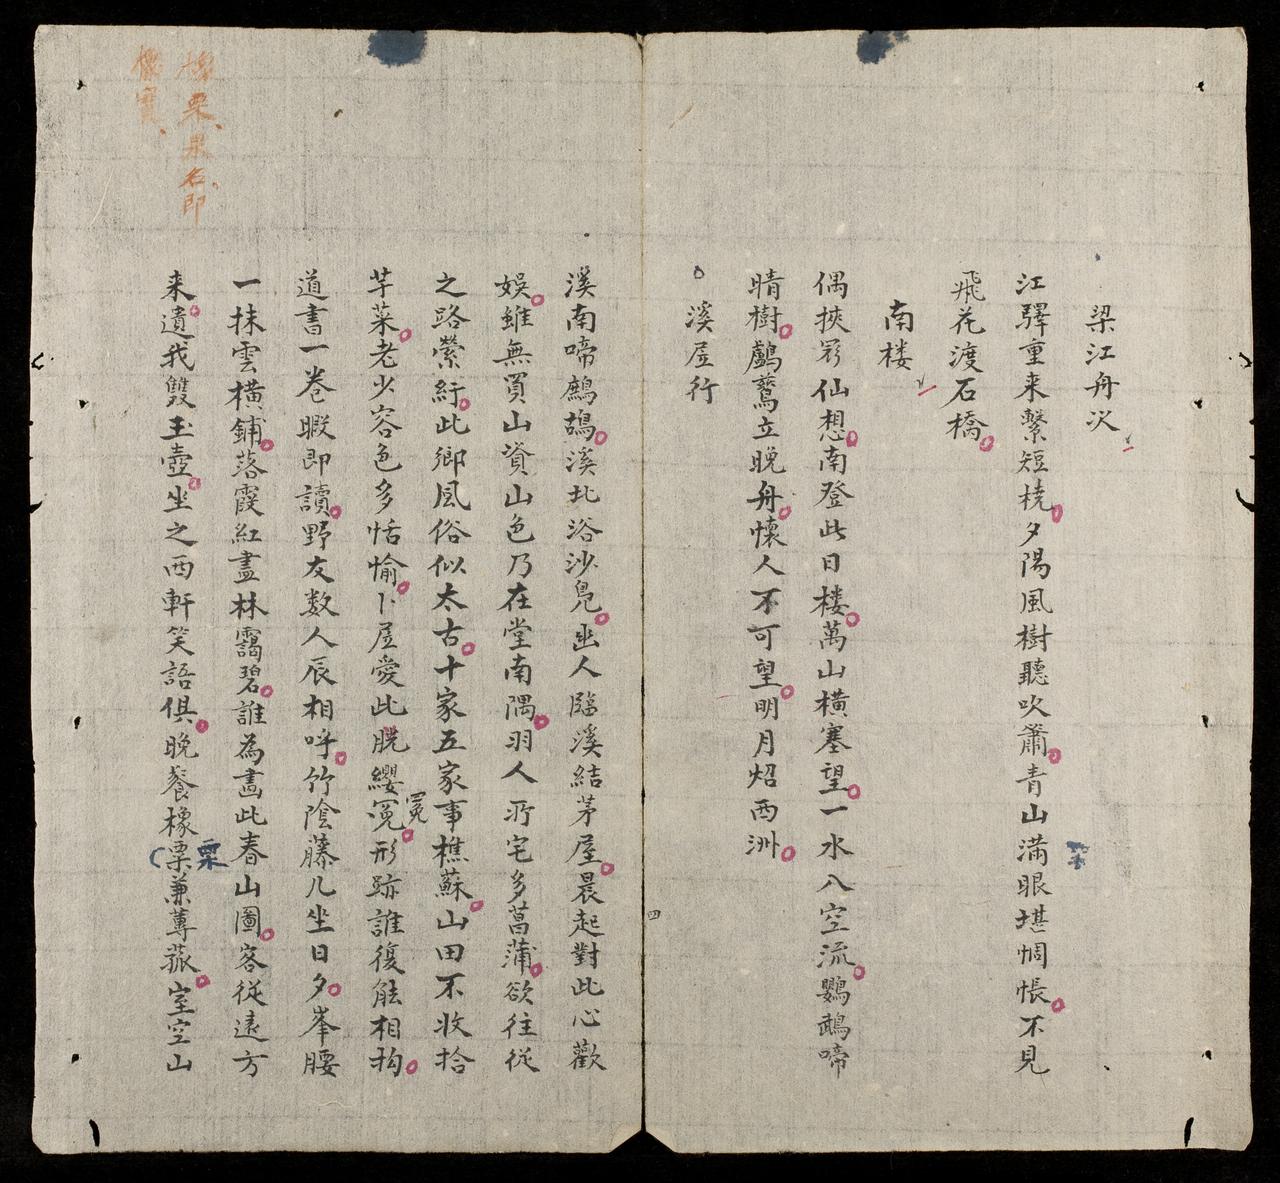 梁江舟次
江驛重来繫短橈夕陽風樹聽吹簫青山満眼堪惆悵不見
飛花渡石橋
南楼
偶挾彩仙想南登此日楼萬山横塞望一水八空流鸚鵡啼
晴樹鸕鶿立晚舟懷人不可望明月炤西洲
溪屋行
溪南啼鷓鴣溪北浴沙鳧幽人臨溪結茅屋晨起對此心歡
娛雖無買山資山色乃在堂南隅羽人所宅多菖蒲欲往從
之路縈紆此鄉風俗似太古十家五家事樵蘇山田不收拾
芋菜老少容色多恬愉卜居愛此脱纓冕形跡誰復能相拘
冕
道書一卷暇即讀野友数人辰相呼竹陰藤几坐日夕峯腰
一抹雲横鋪落霞紅盡林靄碧誰為畵此春山圖客従遠方
来遺我雙玉壺坐之西軒笑語俱晚餐橡栗兼蓴菰室空山
栗
橡栗果名即
橡實
四